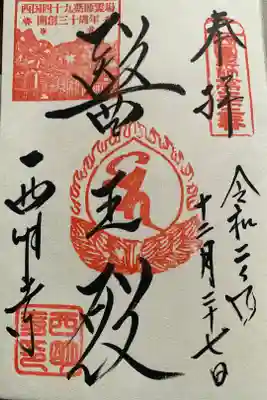 奉拝
令和二年
十二月二十七日
醫王殿
西国四十九薬師霊場
開創三十周年
西明寺